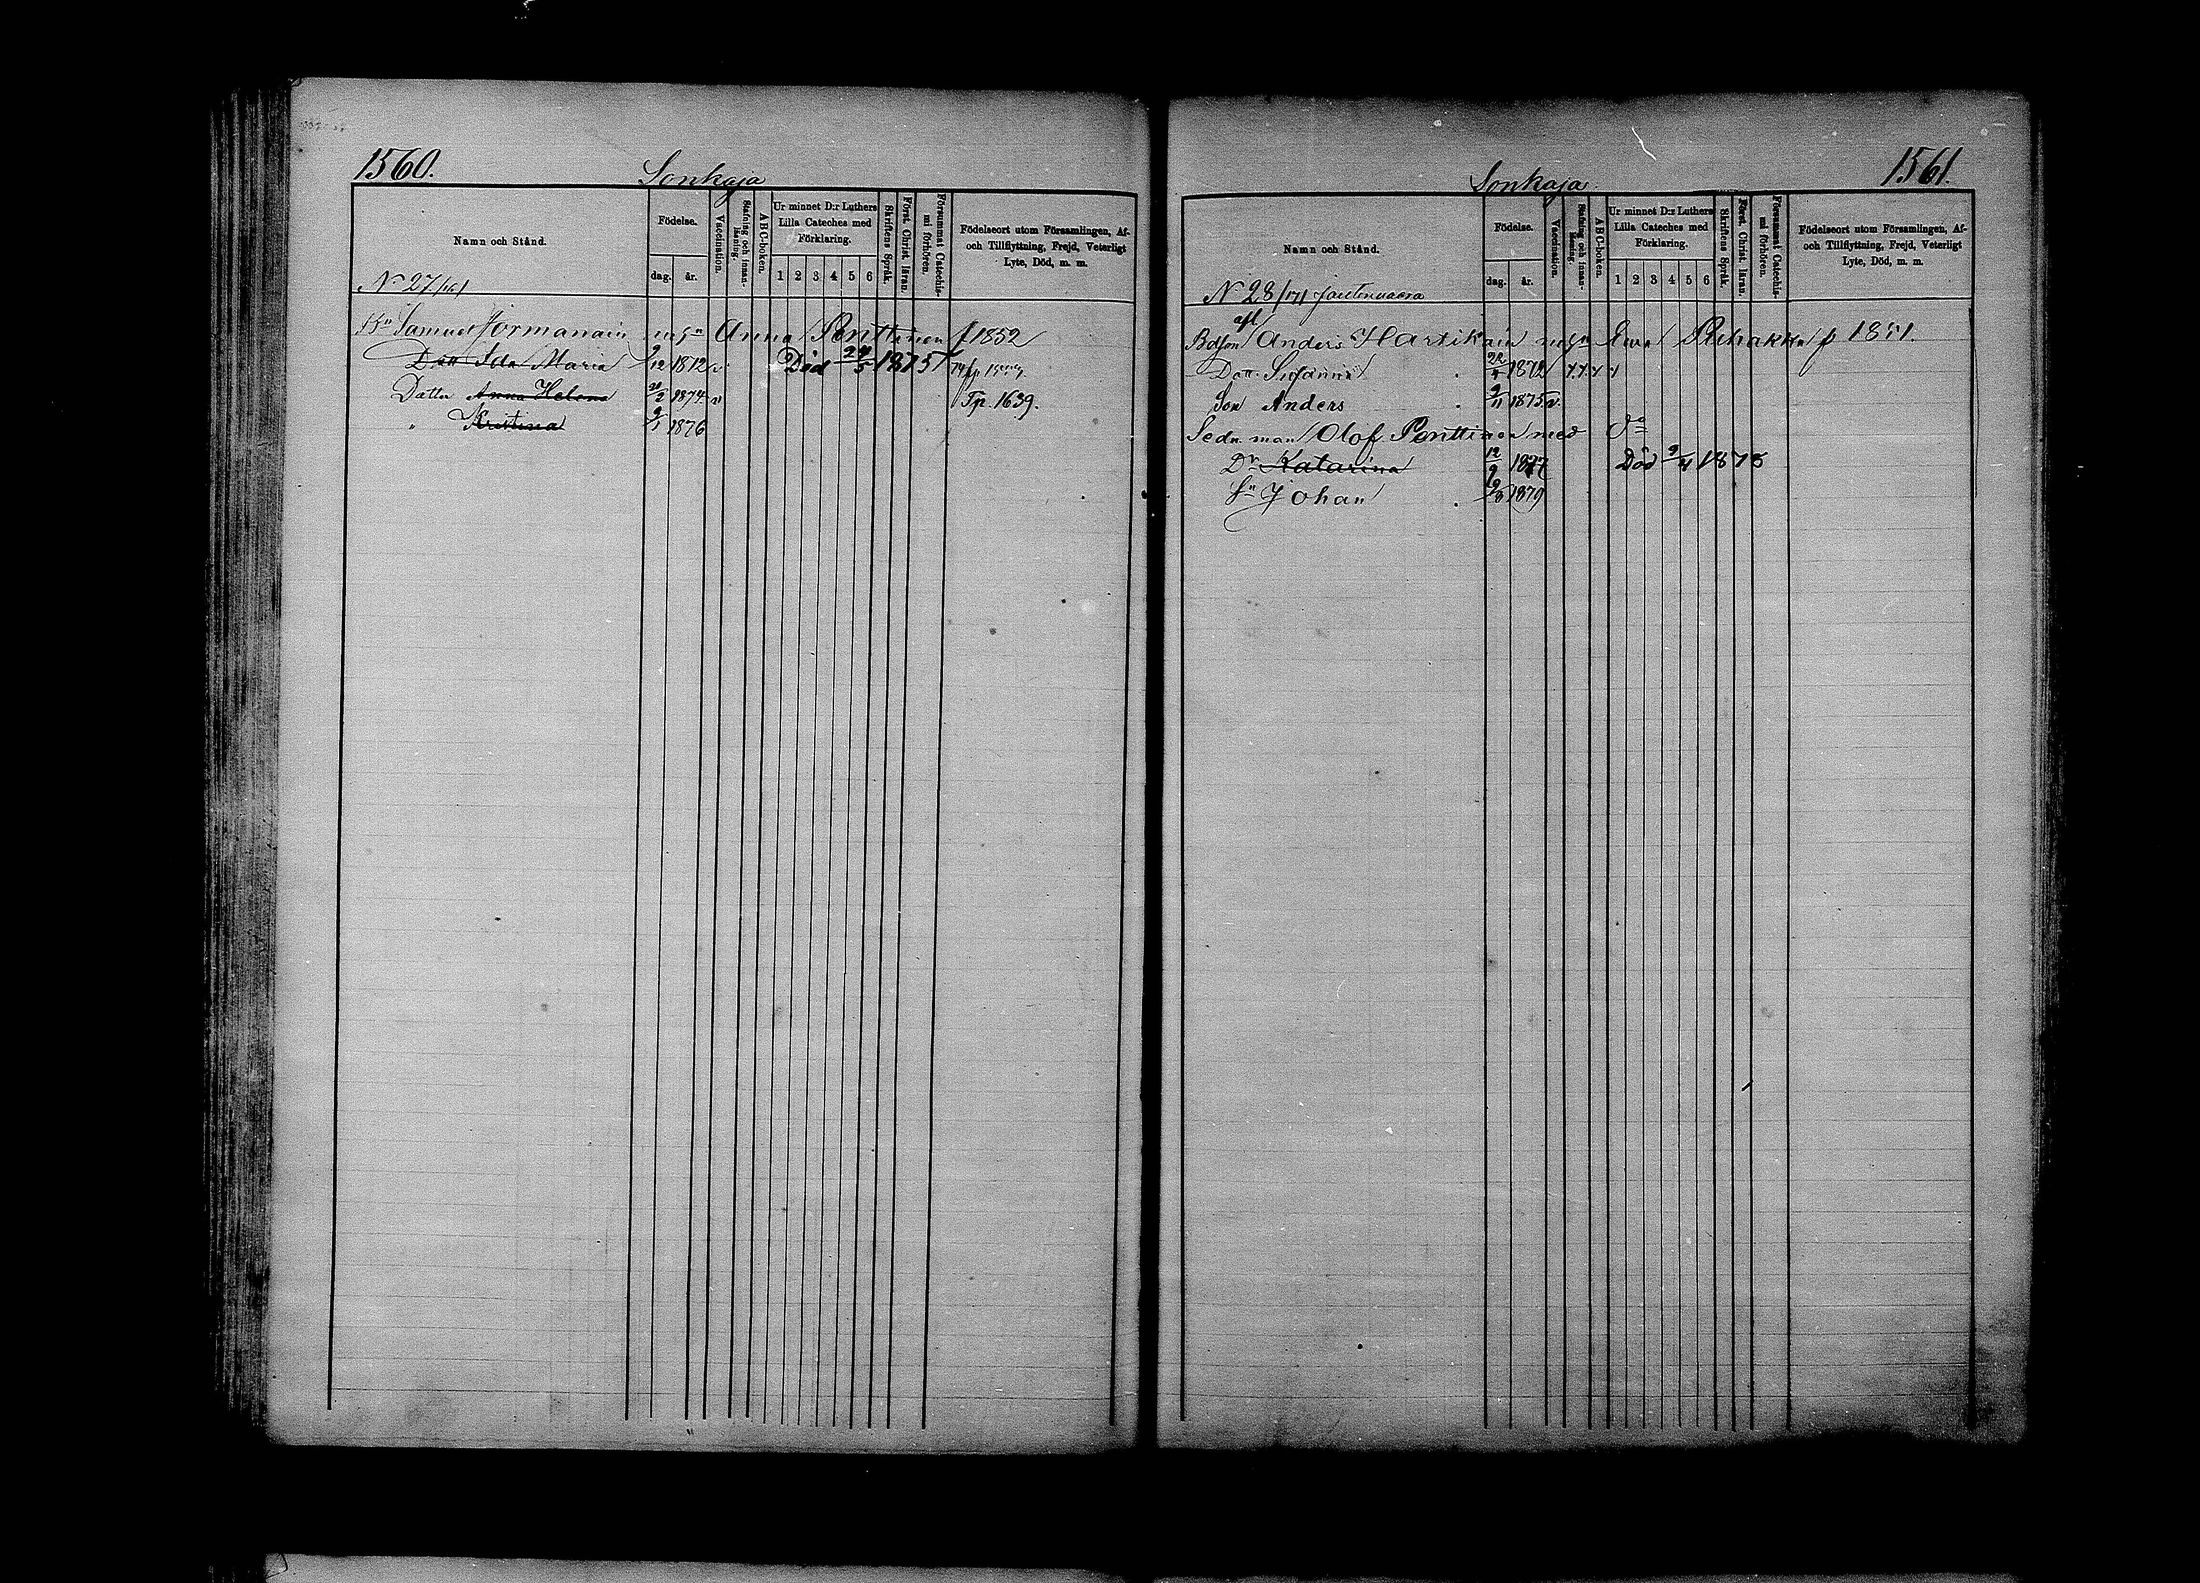 1560.
Sonkaja
Namn och Stånd.
Födelse.
dag.
år.
Vaccination.
Stafning och innan-läsning.
ABC-boken.
Ur minnet D:r Luthers
Lilla Cateches med
Förklaring.
1 2 3 4 5 6
Skriftens Språk.
Först. Christ. läran.
Försummat Catechis-mi förhören.
Födelseort utom Församlingen, Af-
och Tillflyttning, Frejd, Veterligt
Lyte, Död, m. m.
No 27
Samuel Jormanain m hn Anna Penttinen f 1852
Dott Ida Maria 2/12 1872 v Död 24/5 1875
Dattn Anna Helena 20/2 1874 v Tp. 1639.
" Kristina 9/1 1876
Sonkaja
1561.
Namn och Stånd.
Födelse.
dag.
år.
Vaccination.
Stafning och innan-läsning.
ABC-boken.
Ur minnet D:r Luthers
Lilla Cateches med
Förklaring.
1 2 3 4 5 6
Skriftens Språk.
Först. Christ. läran.
Försummat Catechis-mi förhören.
Födelseort utom Församlingen, Af-
och Tillflyttning, Frejd, Veterligt
Lyte, Död, m. m.
No 28
afl
Anders Hartikain m hn Eva f 1851.
Dott. Susanna 22/4 1872
Son Anders 9/11 1875 v.
Sedn. man Olof Penttinen med
Dr Katarina 12/9 1877 Död 9/4 1878
Sn Johan 9/8 1879